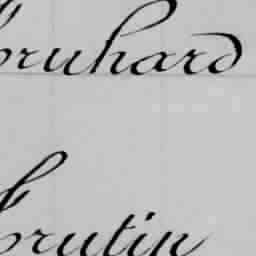 bruhard
brutin